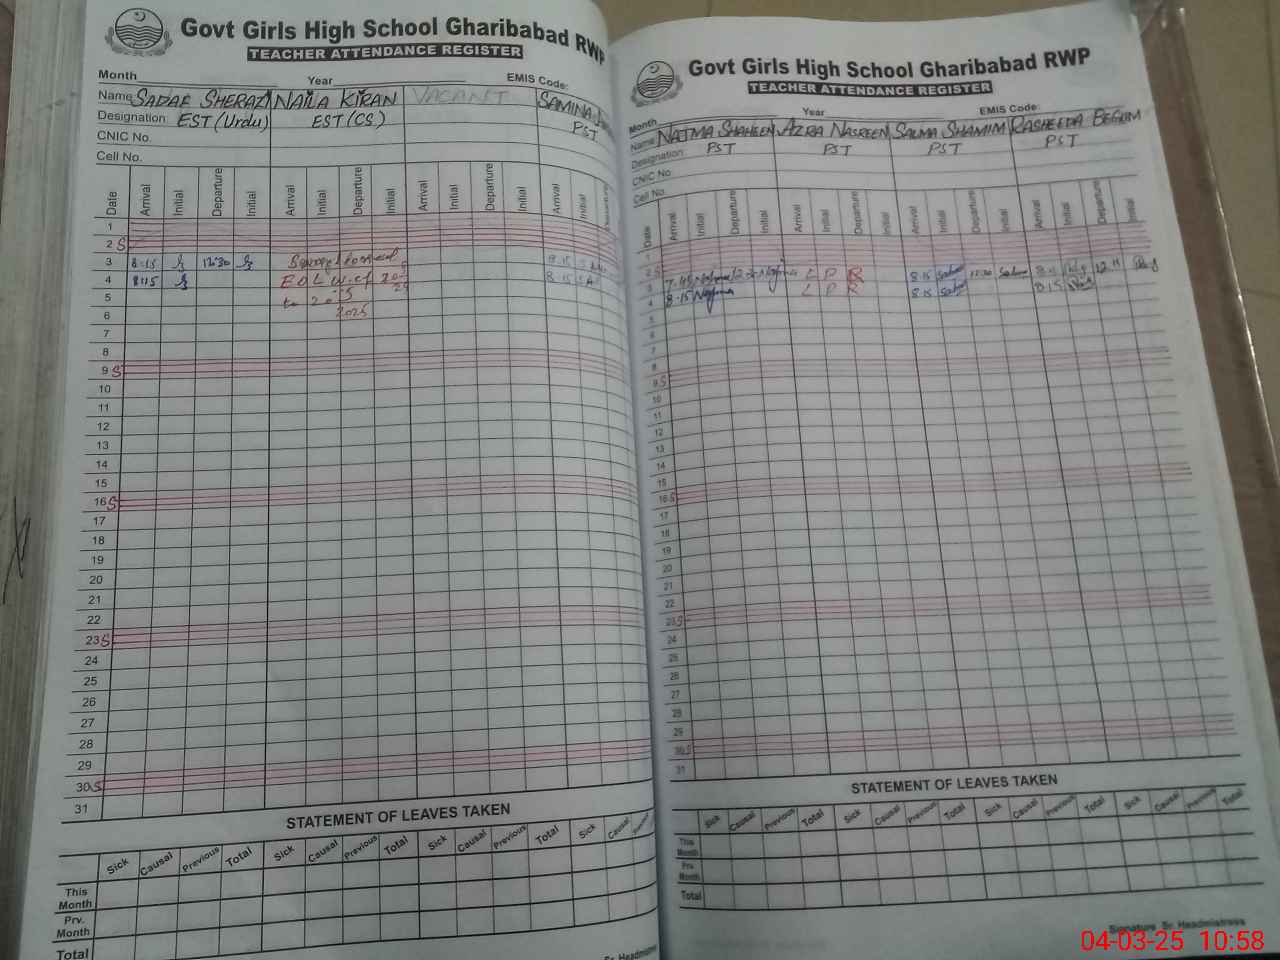 Govt Girls High School Gharibabad RWP
TEACHER ATTENDANCE REGISTER
Month Year EMIS Code:
Name SADAF SHERAZ NAILA KIRAN VACANT SAMINA
Designation: EST (Urdu) EST (CS) PST
CNIC No.
Cell No.
Date Arrival Initial Departure Initial Arrival Initial Departure Initial Arrival Initial Departure Initial Arrival Initial Departure
1
2 S
3 8:15 12:30 8.15
4 8:15 EOL w.e.f 8 15
5 to
6 2025
7
8
9 S
10
11
12
13
14
15
16 S
17
18
19
20
21
22
23 S
24
25
26
27
28
29
30 S
31
STATEMENT OF LEAVES TAKEN
Sick Causal Previous Total Sick Causal Previous Total Sick Causal Previous Total Sick Causal Previous
This Month
Prv. Month
Total
Sr. Headmistress
Govt Girls High School Gharibabad RWP
TEACHER ATTENDANCE REGISTER
Month Year EMIS Code:
Name NAJMA SHAHEEN AZRA NASREEN SALMA SHAMIM RASHEEDA BEGUM
Designation: PST PST PST PST
CNIC No
Cell No.
Date Arrival Initial Departure Initial Arrival Initial Departure Initial Arrival Initial Departure Initial Arrival Initial Departure Initial
1
2 S
3 7.45 Najma L P R 8.15 Salma Salma 8.15
4 8.15 Najma L P R 8.15 Salma 8.15
5
6
7
8
9 S
10
11
12
13
14
15
16 S
17
18
19
20
21
22
23 S
24
25
26
27
28
29
30 S
31
STATEMENT OF LEAVES TAKEN
Sick Causal Previous Total Sick Causal Previous Total Sick Causal Previous Total Sick Causal Previous Total
This Month
Prv. Month
Total
Signature Sr. Headmistress
04-03-25 10:58